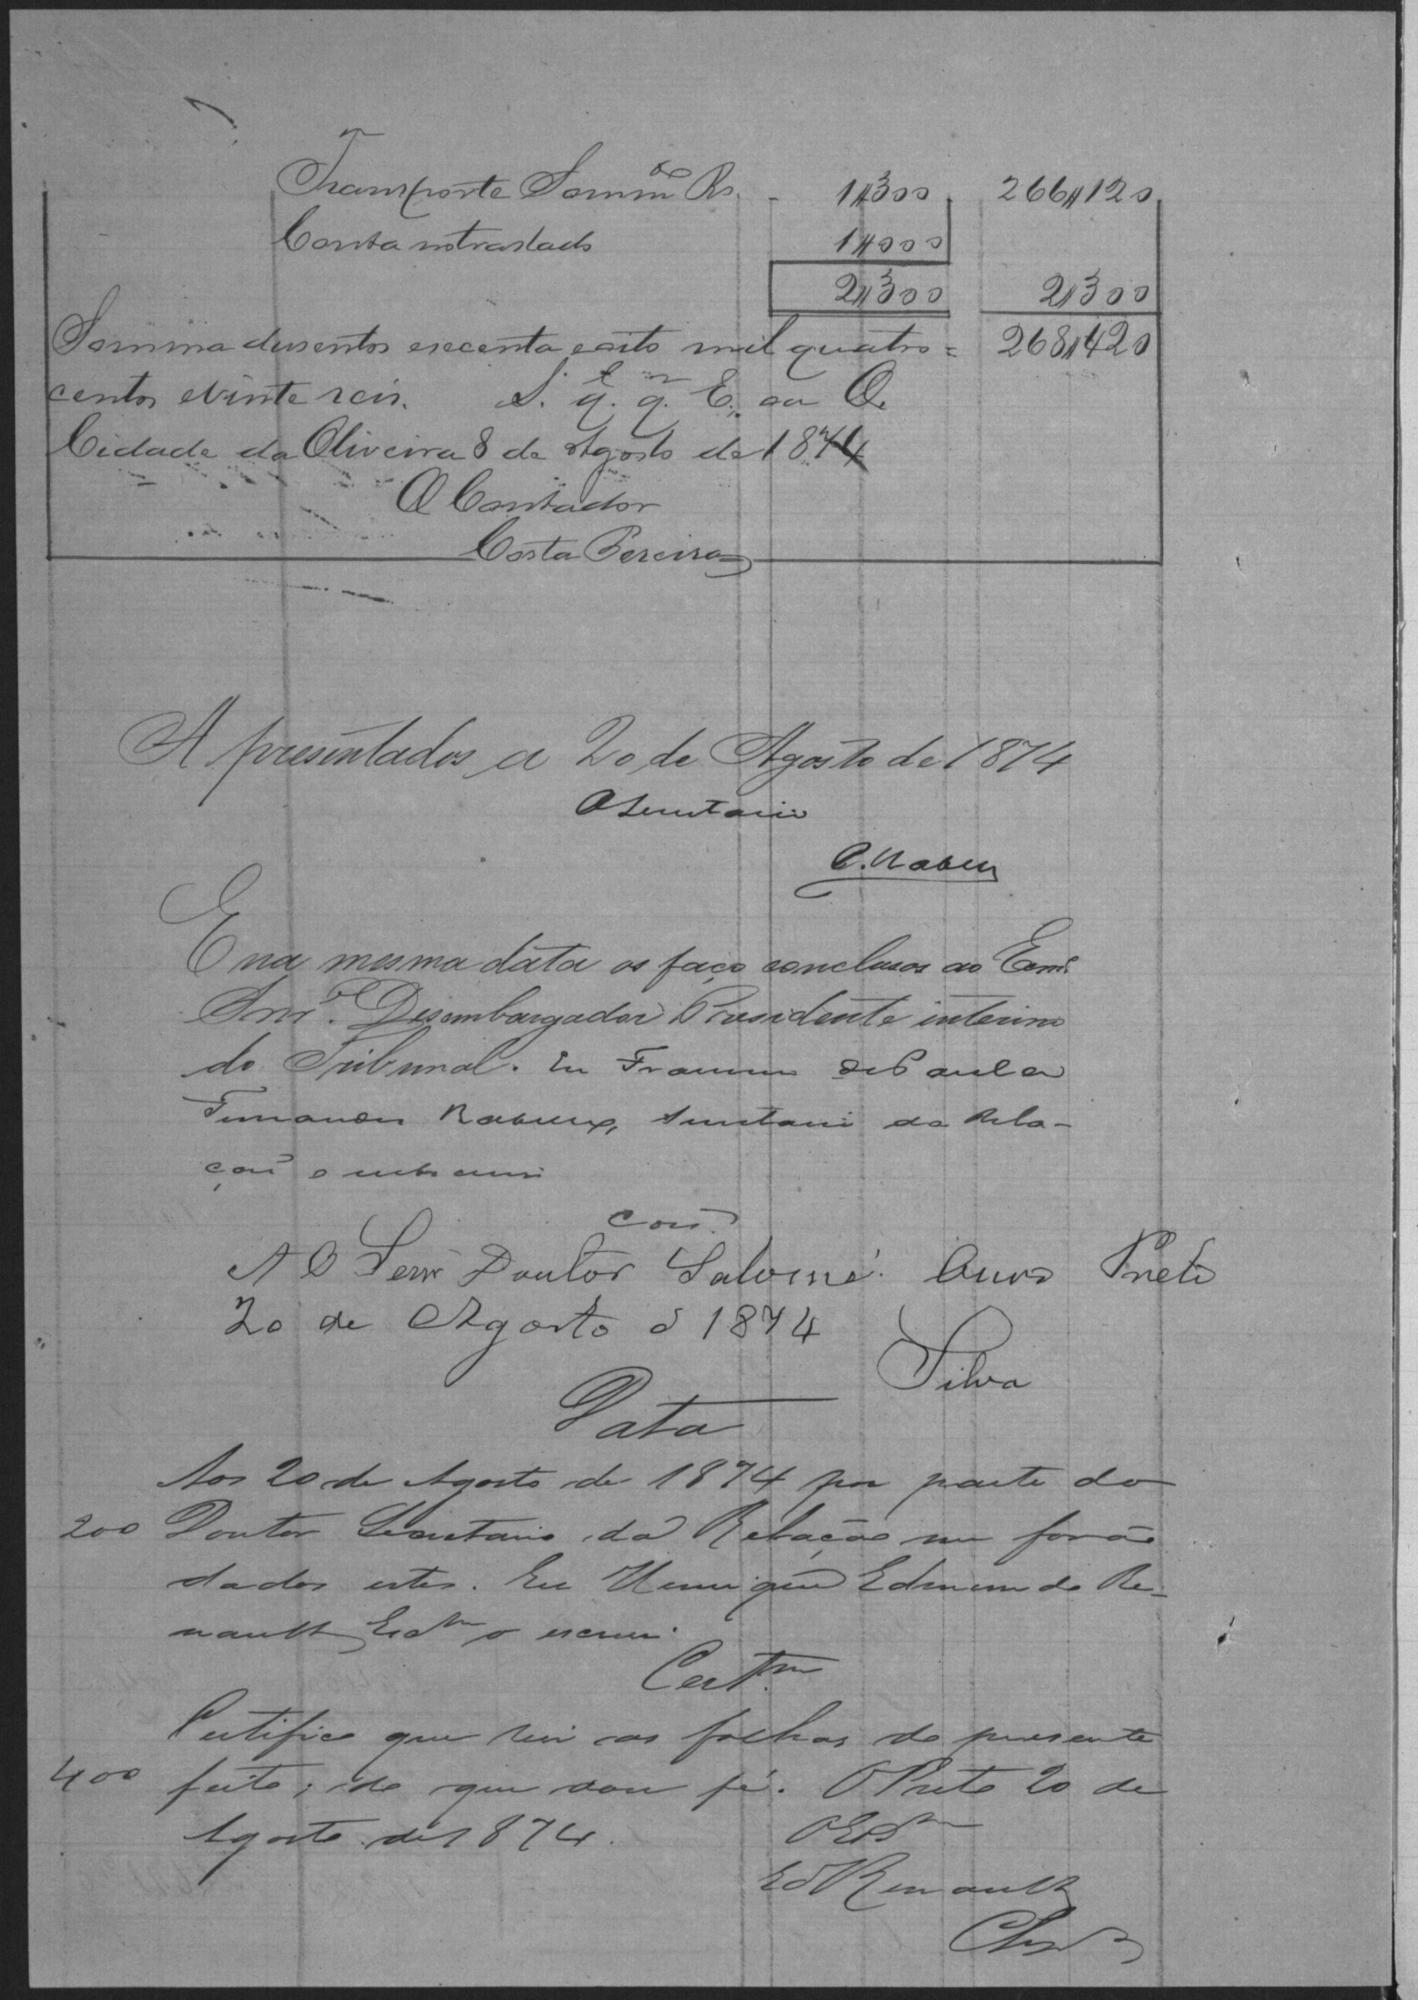 Transporte Somm Rs. - 1$300 266$120
Conta notraslado 1$000
2$300 2$300
Somma dusentos esecenta eoito mil quatro= 268$420
centos evinte reis. S. q. q. E. ou O.
Cidade da Oliveira 8 de Agosto de 1874
O Contador
Costa Pereira
Apresentados a 20 de Agosto de 1874
O Secretario
E na mesma data os faço conclusos ao Exmº
Snr. Desembargador Presidente interino
do Tribunal. Eu Francisco de Paula
Fernandes Rabello, Secretario da Rela-
çaõ o subscrevi
Ao Senr Doutor Salomé. Ouro Preto
20 de Agosto d 1874
Silva
Data
Aos 20 de Agosto de 1874 por parte do
200 Doutor Secretario da Relação me forão
dados estes. Eu Henrique Edmundo Re-
nault Escm o escrevi.
Certm
Certifico que revi as folhas do presente
400 feito; do que dou fé. O Preto 20 de
Agosto de 1874.
O Escm
Ed Renault